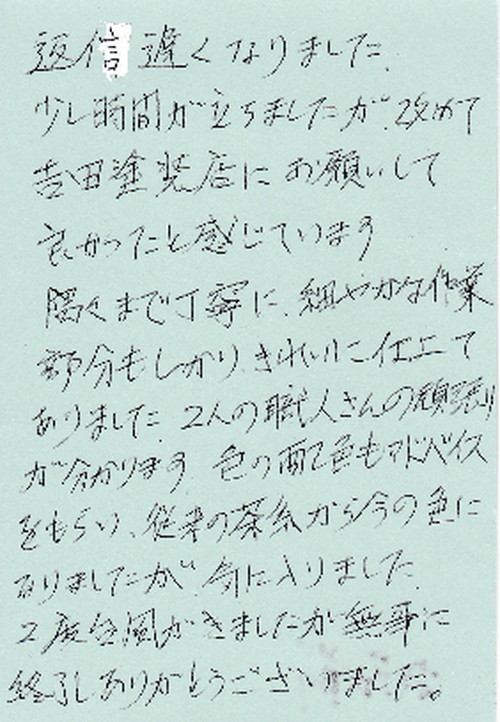 返信遅くなりました.
少し時間が立ちましたが.改めて
吉田塗装店にお願いして
良かったと感じています
隅々まで丁寧に、細やかな作業
部分もしかり、きれいに仕上て
ありました.2人の職人さんの頑張り
が分かります.色の配色もアドバイス
をもらい、従来の茶系から今の色に
なりましたが気に入りました.
2度台風がきましたが無事に
終了しありがとうございました。